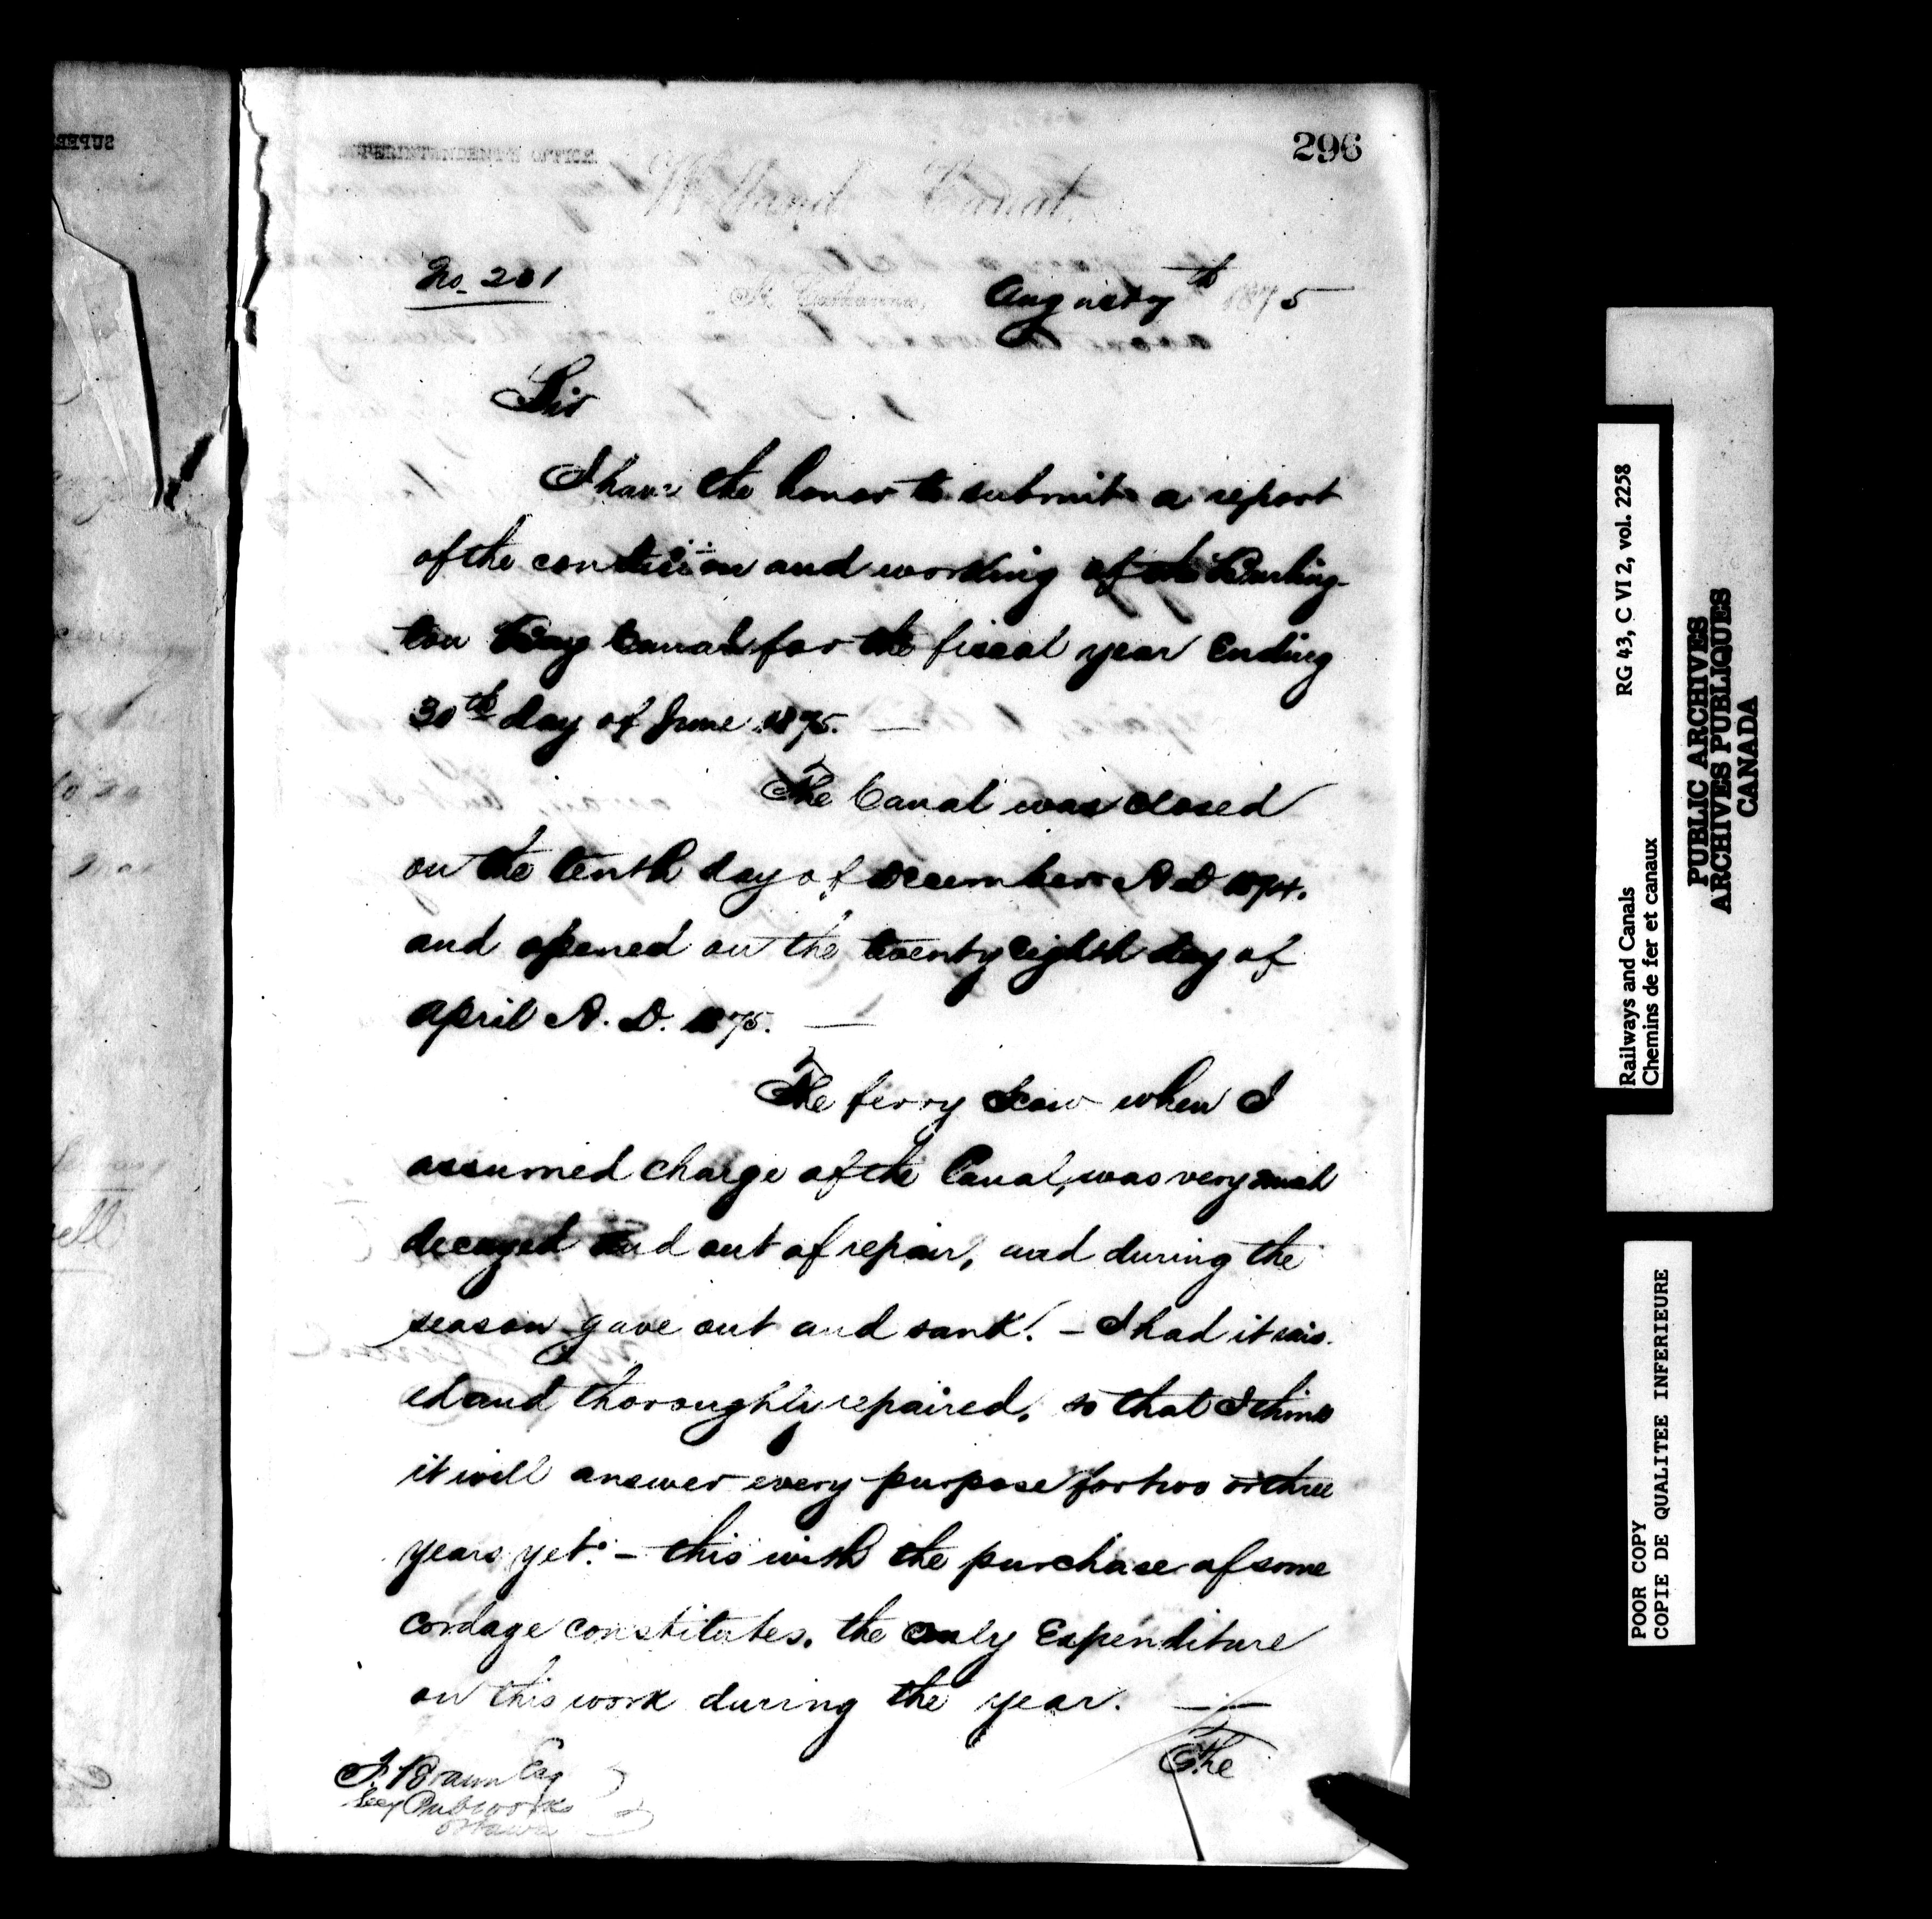 296
Welland Canal.
No. 201
St. Catharines, August 7th 1875
Sir
I have the honor to submit a report
of the condition and working of the Burling-
ton Bay Canal for the fiscal year Ending
30th day of June 1875. —
The Canal was closed
on the tenth day of December A D 1874.
and opened on the twenty eighth day of
April A. D. 1875. —
The ferry Scow when I
assumed charge of the Canal, was very much
decayed and out of repair, and during the
season gave out and sank. - I had it rais-
ed and thoroughly repaired, so that I think
it will answer every purpose for two or three
years yet: - this with the purchase of some
cordage constitutes. the only Expenditure
on this work during the year. —
The
F. Braun Esq
Secy Pub works
Ottawa
Railways and Canals RG 43, C VI 2, vol. 2258
Chemins de fer et canaux
PUBLIC ARCHIVES
ARCHIVES PUBLIQUES
CANADA
POOR COPY
COPIE DE QUALITEE INFERIEURE